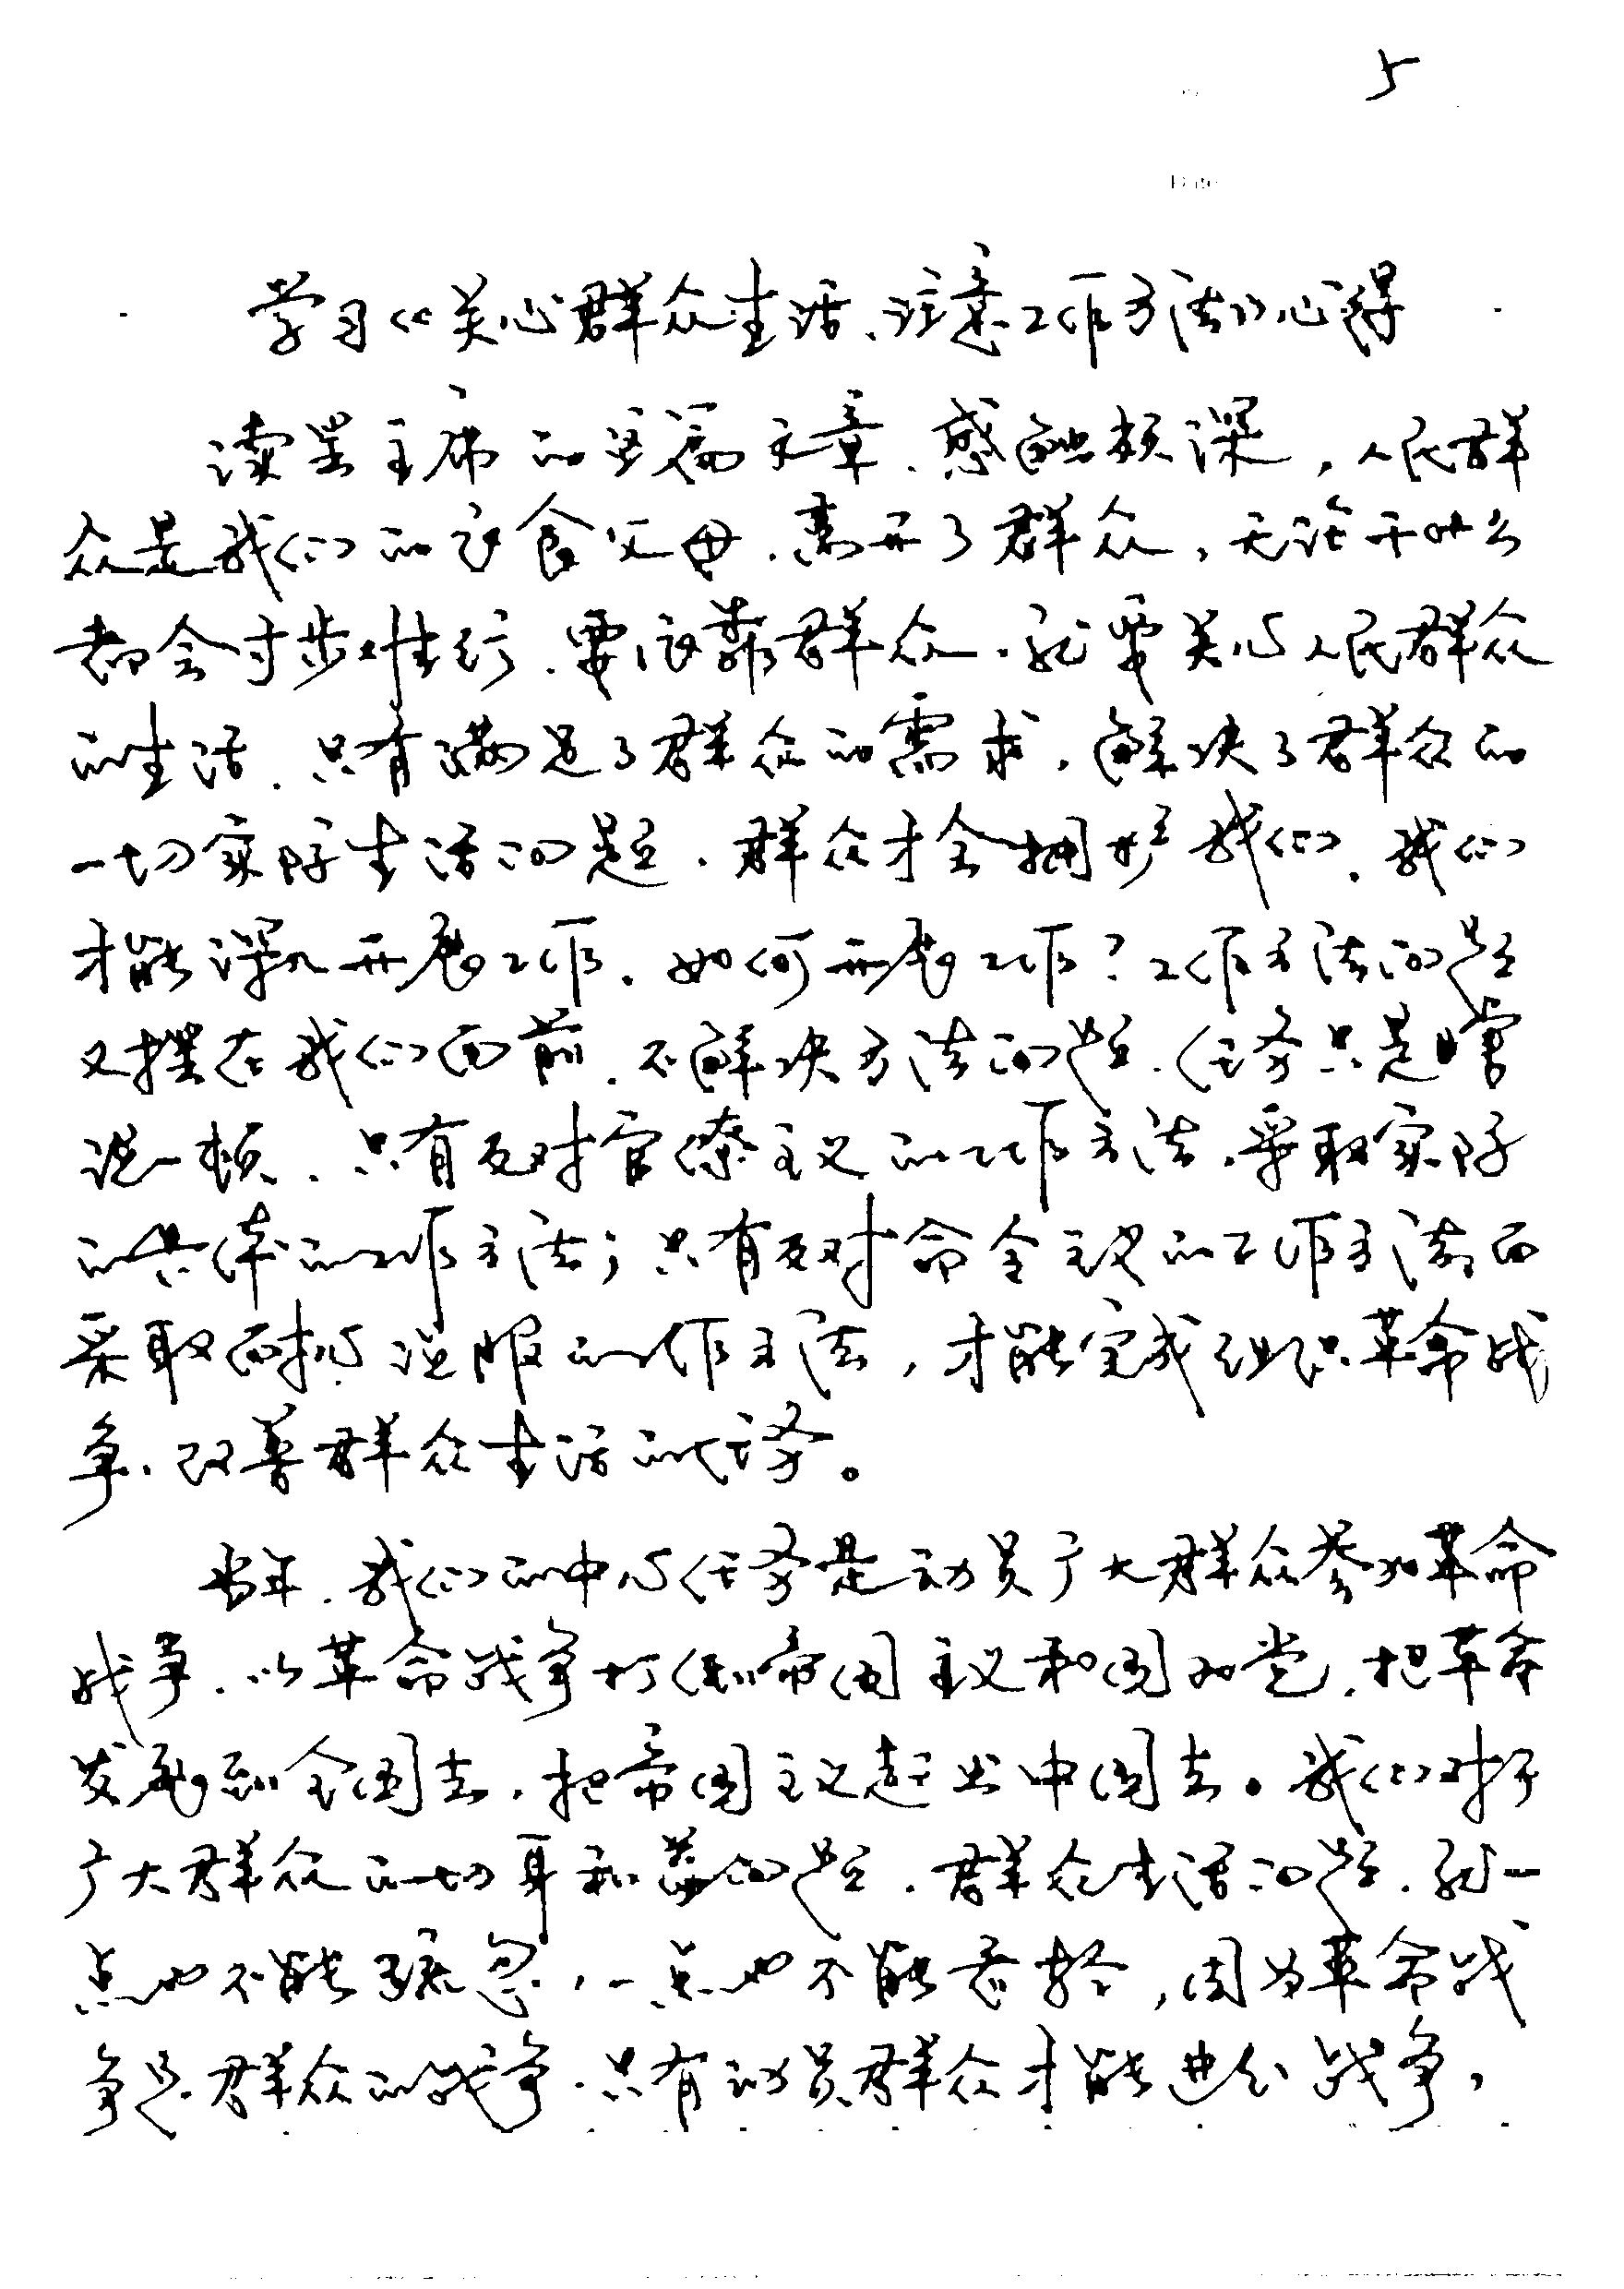 5
Date
学习《关心群众生活、注意工作方法》心得
读罢主席的这篇文章、感触颇深，人民群
众是我们的衣食父母.离开了群众，无论干什么
都会寸步难行.要依靠群众.就要关心人民群众
的生活.只有满足了群众的需求.解决了群众的
一切实际生活问题.群众才会拥护我们.我们
才能深入开展工作.如何开展工作?工作方法问题
又摆在我们面前.不解决方法问题.任务只是瞎
说一顿.只有反对官僚主义的工作方法.采取实际
的具体的工作方法;只有反对命令主义的工作方法而
采取耐心说服的工作方法,才能完成组织革命战
争.改善群众生活的任务。
当年.我们的中心任务是动员广大群众参加革命
战争.以革命战争打倒帝国主义和国民党.把革命
发展到全国去.把帝国主义赶出中国去。我们对于
广大群众的切身利益问题.群众生活问题.就一
点也不能疏忽,一点也不能看轻,因为革命战
争是群众的战争.只有动员群众才能进行战争,